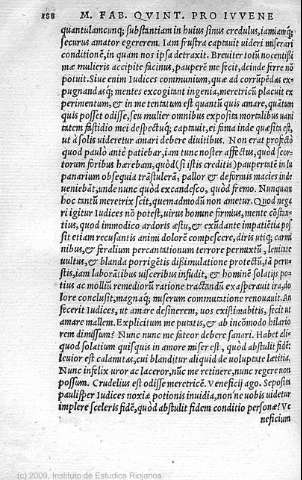 188 M. FAB. QVINT. PRO IVVENE
quantulamcunq; substantiam in huius sinus credulus, iamiamq;
securus amator egererem. Iam frustra captauit uideri miserari
conditionē, in quam nor ipsa detraxit. Breuiter
ma mulieris accipite facinus, pauperē me fecit, deinde ferre nō
potuit. Siue enim Iudices communium, quæ ad corrūpēdas ex-
pugnandasq; mentes excogitant ingenia, meretricū placuit ex
perimentum, & in me tentatum est quantū quis amare, quātum
quis posset odisse, seu mulier omnibus exposita mortalibus uani
tatem fastidio mei despectuq; captauit, ei fima inde quæsita est,
ut à solis uideretur amari debere diuitibus. Non erat profectò
quod paulò antè patiebar, iam tunc noster affectus, quòd scor
torum foribus hærebam, quòd (si istis creditis) paupertate in lu
panarium obsequia trāstuleram, pallor & deformis macies inde
ueniebāt, unde nunc quòd excandesco, quòd fremo. Nunquam
hoc tantū meretrix scit, quemadmodū non ametur. Quod nega
ri igitur Iudices nō potest, uirus homine firmius, mente cōstan
tius, quod immodico ardoris æstu, & exudante impatiētia pos
sit etiam recusantis animi dolorē compescere, diris utiq; carmi
nibus, & feralium percantationum terrore permixtū, lentante
uultus, & blanda porrigētis dissimulatione protectū, iā peru-
stis, iam laborātibus uisceribus infudit, & hominē solatijs po-
tius ac molliū remediorū ratione tractandū exasperauit ira, do
lore conclusit, magnaq; miserum commutatione renouauit. An
fecerit Iudices, ut amare desinerem, uos existimabitis, fecit ut
amare mallem. Explicitum me putatis, & ab incōmodo hilario
rem dimissum? Nunc nunc me fateor debere sanari. Habet ali-
quod solatium quisquis in amore miser est, quòd abstulit fidē:
leuior est calamitas, cui blanditur aliquid de uoluptate lætitia.
Nunc infelix uror ac laceror, nūc me retinere, nunc regere non
possum. Crudelius est odisse meretricē. Veneficij ago. Sepositā
paulisper Iudices noxiæ potionis inuidia, non ne uobis uidetur
implere sceleris fidē, quòd abstulit fidem conditio personæ? Ve
neficium
(c) 2009, Instituto de Estudios Riojanos